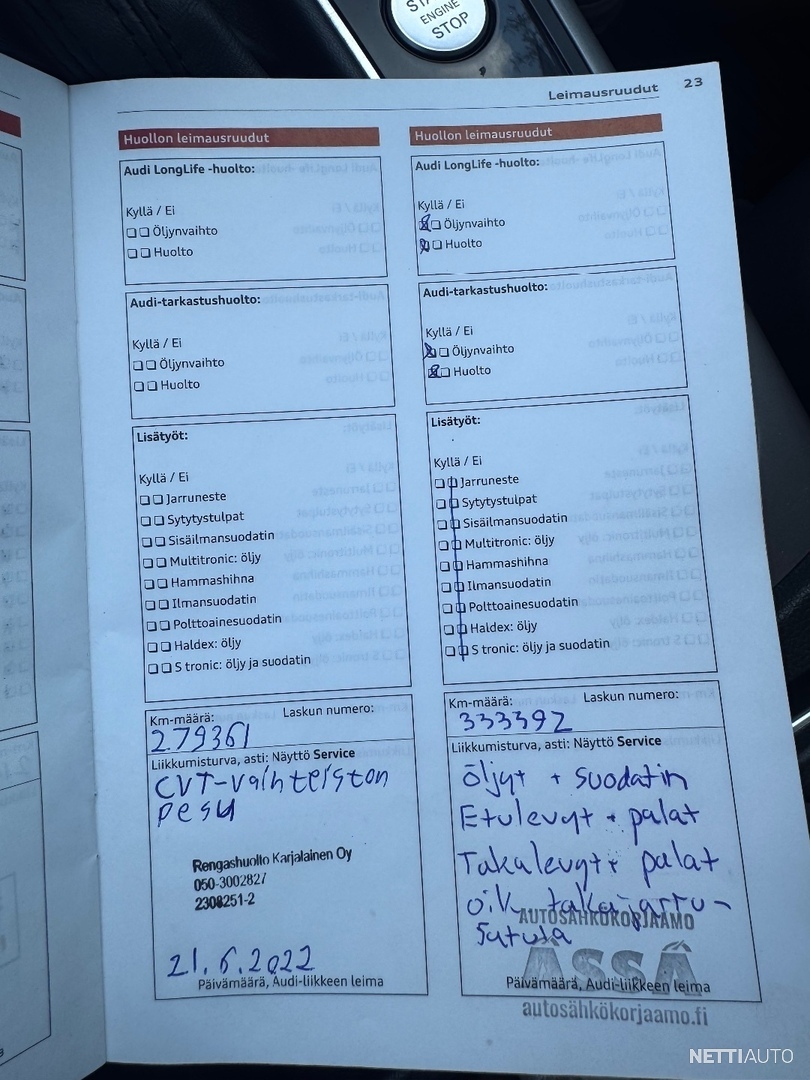 START
ENGINE
STOP
Leimausruudut 23
Huollon leimausruudut
Audi LongLife -huolto:
Kyllä / Ei
Öljynvaihto
Huolto
Audi-tarkastushuolto:
Kyllä / Ei
Öljynvaihto
Huolto
Lisätyöt:
Kyllä / Ei
Jarruneste
Sytytystulpat
Sisäilmansuodatin
Multitronic: öljy
Hammashihna
Ilmansuodatin
Polttoainesuodatin
Haldex: öljy
S tronic: öljy ja suodatin
Km-määrä: Laskun numero:
279361
Liikkumisturva, asti: Näyttö Service
CVT-vaihteiston
pesu
Rengashuolto Karjalainen Oy
050-3002827
2308251-2
21.6.2022
Päivämäärä, Audi-liikkeen leima
Huollon leimausruudut
Audi LongLife -huolto:
Kyllä / Ei
Öljynvaihto
Huolto
Audi-tarkastushuolto:
Kyllä / Ei
Öljynvaihto
Huolto
Lisätyöt:
Kyllä / Ei
Jarruneste
Sytytystulpat
Sisäilmansuodatin
Multitronic: öljy
Hammashihna
Ilmansuodatin
Polttoainesuodatin
Haldex: öljy
S tronic: öljy ja suodatin
Km-määrä: Laskun numero:
333392
Liikkumisturva, asti: Näyttö Service
Öljyt + suodatin
Etulevyt + palat
Takalevyt + palat
oik. takajarru-
satula
AUTOSÄHKÖKORJAAMO
ÄSSÄ
Päivämäärä, Audi-liikkeen leima
autosähkökorjaamo.fi
NETTIAUTO